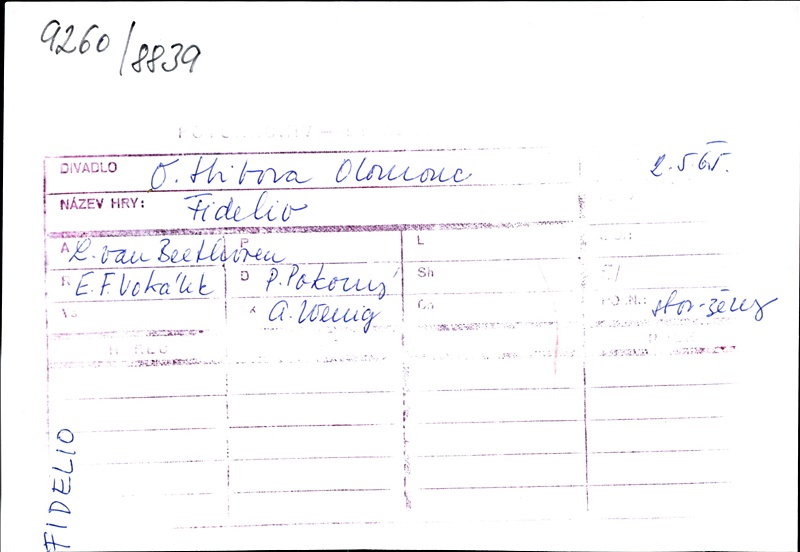 9260/8839
DIVADLO O. Stibora Olomouc 2.5.65.
NÁZEV HRY: Fidelio
A L. van Beethoven P L
R E. F. Vokálek D P. Pokorný Sh
K A. Wenig
FIDELIO